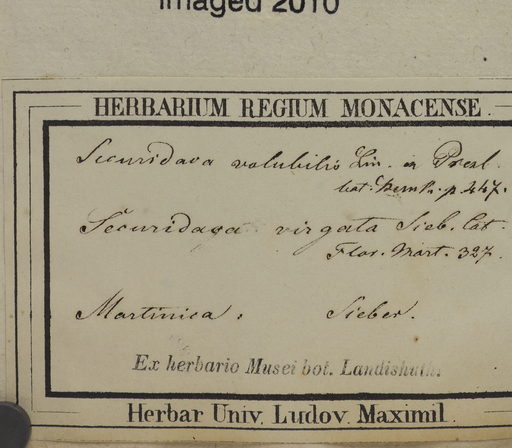 Imaged 2010
HERBARIUM REGIUM MONACENSE.
Securidaca volubilis Lin. ex Presl.
bot. Bemk. p. 447.
Securidaca virgata Sieb. Cat.
Flor. Mart. 327.
Martinica. Sieber.
Ex herbario Musei bot. Landishuth.
Herbar Univ. Ludov. Maximil.